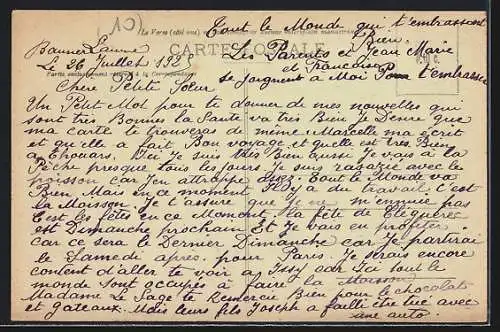 Tout le Monde qui t'embrassent
Bien.
CARTE POSTALE
Les Parents et Jean Marie
et Francoise
se joignent à Moi Pour t'embrasser
Le 26 Juillet 1928
Chere Petite Sœur
Un Petit Mot pour te donner de mes nouvelles qui
sont très Bonnes la Santé va très Bien Je Pense que
ma carte te trouveras de même Marcelle ma écrit
et qu'elle a fait Bon voyage et quelle est très Bien
a Thouars. Ici Je suis très Bien aussi Je vais a la
Pêche presque tous les jours Je suis ravie avec le
poisson car J'en attrappe assez. Tout le Monde va
Bien. Mais en ce moment Il y a du travail c'est
la Moisson. Je t'assure que Je ne m'ennuie pas
C'est les fêtes en ce Moment. la fête de Cleguerec
est Dimanche prochain Et Je vais en profiter
car ce sera le Dernier Dimanche car Je partirai
le Samedi après. pour Paris. Je serais encore
content d'aller te voir a Issy car Ici tout le
monde sont occupés à faire la Moisson
Madame Le Sage te remercie Bien pour le chocolat
et gateaux. Mais leurs fils Joseph a faillit être tué avec
une auto.